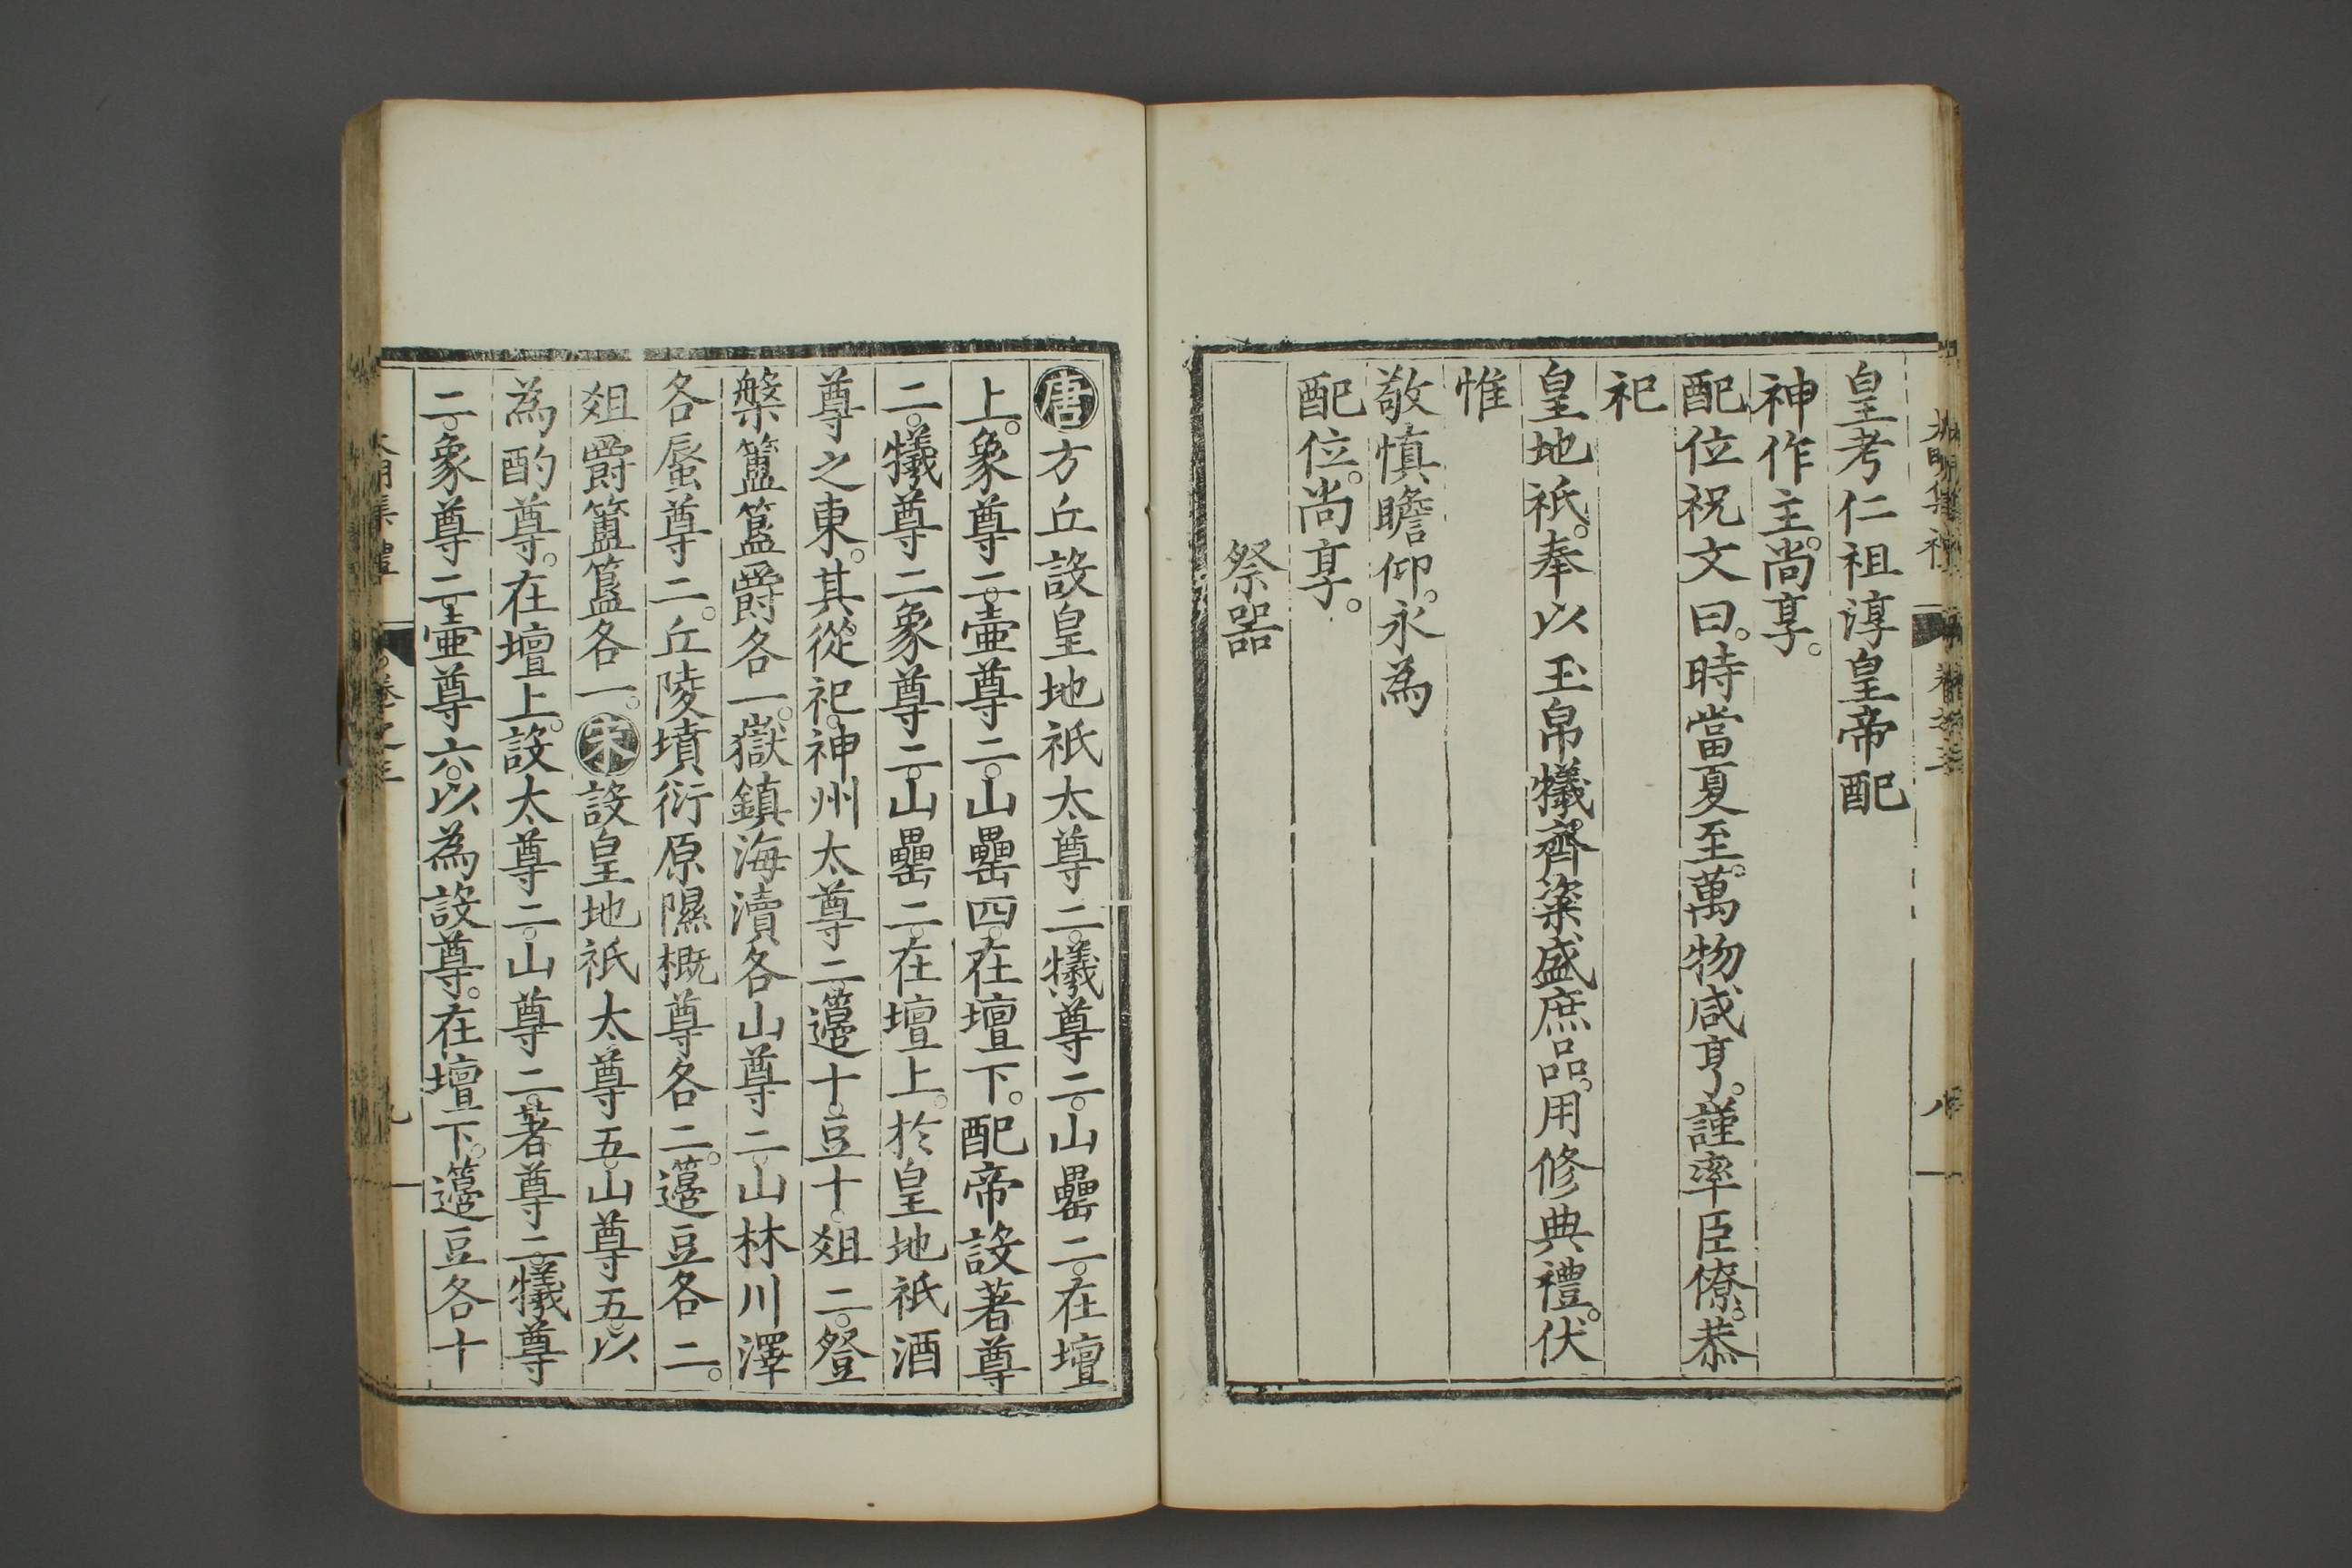 皇考仁祖淳皇帝配
神作主。尚享。
配位祝文曰。時當夏至。萬物咸亨。謹率臣僚。恭
祀
皇地祇。奉以玉帛犧齊粢盛庶品。用修典禮。伏
惟
敬慎瞻仰。永為
配位。尚享。
祭器
唐方丘設皇地祇太尊二。犧尊二。山罍二。在壇
上。象尊二。壷尊二。山罍四。在壇下。配帝設著尊
二。犧尊二象尊二。山罍二。在壇上。於皇地祇酒
尊之東。其從祀。神州太尊二。籩十。豆十。爼二。㽅
槃簠簋爵各一。嶽鎮海瀆各山尊二。山林川澤
各蜃尊二。丘陵墳衍原隰概尊各二。籩豆各二。
爼爵簠簋各一。宋設皇地祇太尊五。山尊五。以
為酌尊。在壇上。設太尊二。山尊二。著尊二。犧尊
二。象尊二。壷尊六。以為設尊。在壇下。籩豆各十
大明集禮 卷之三 九